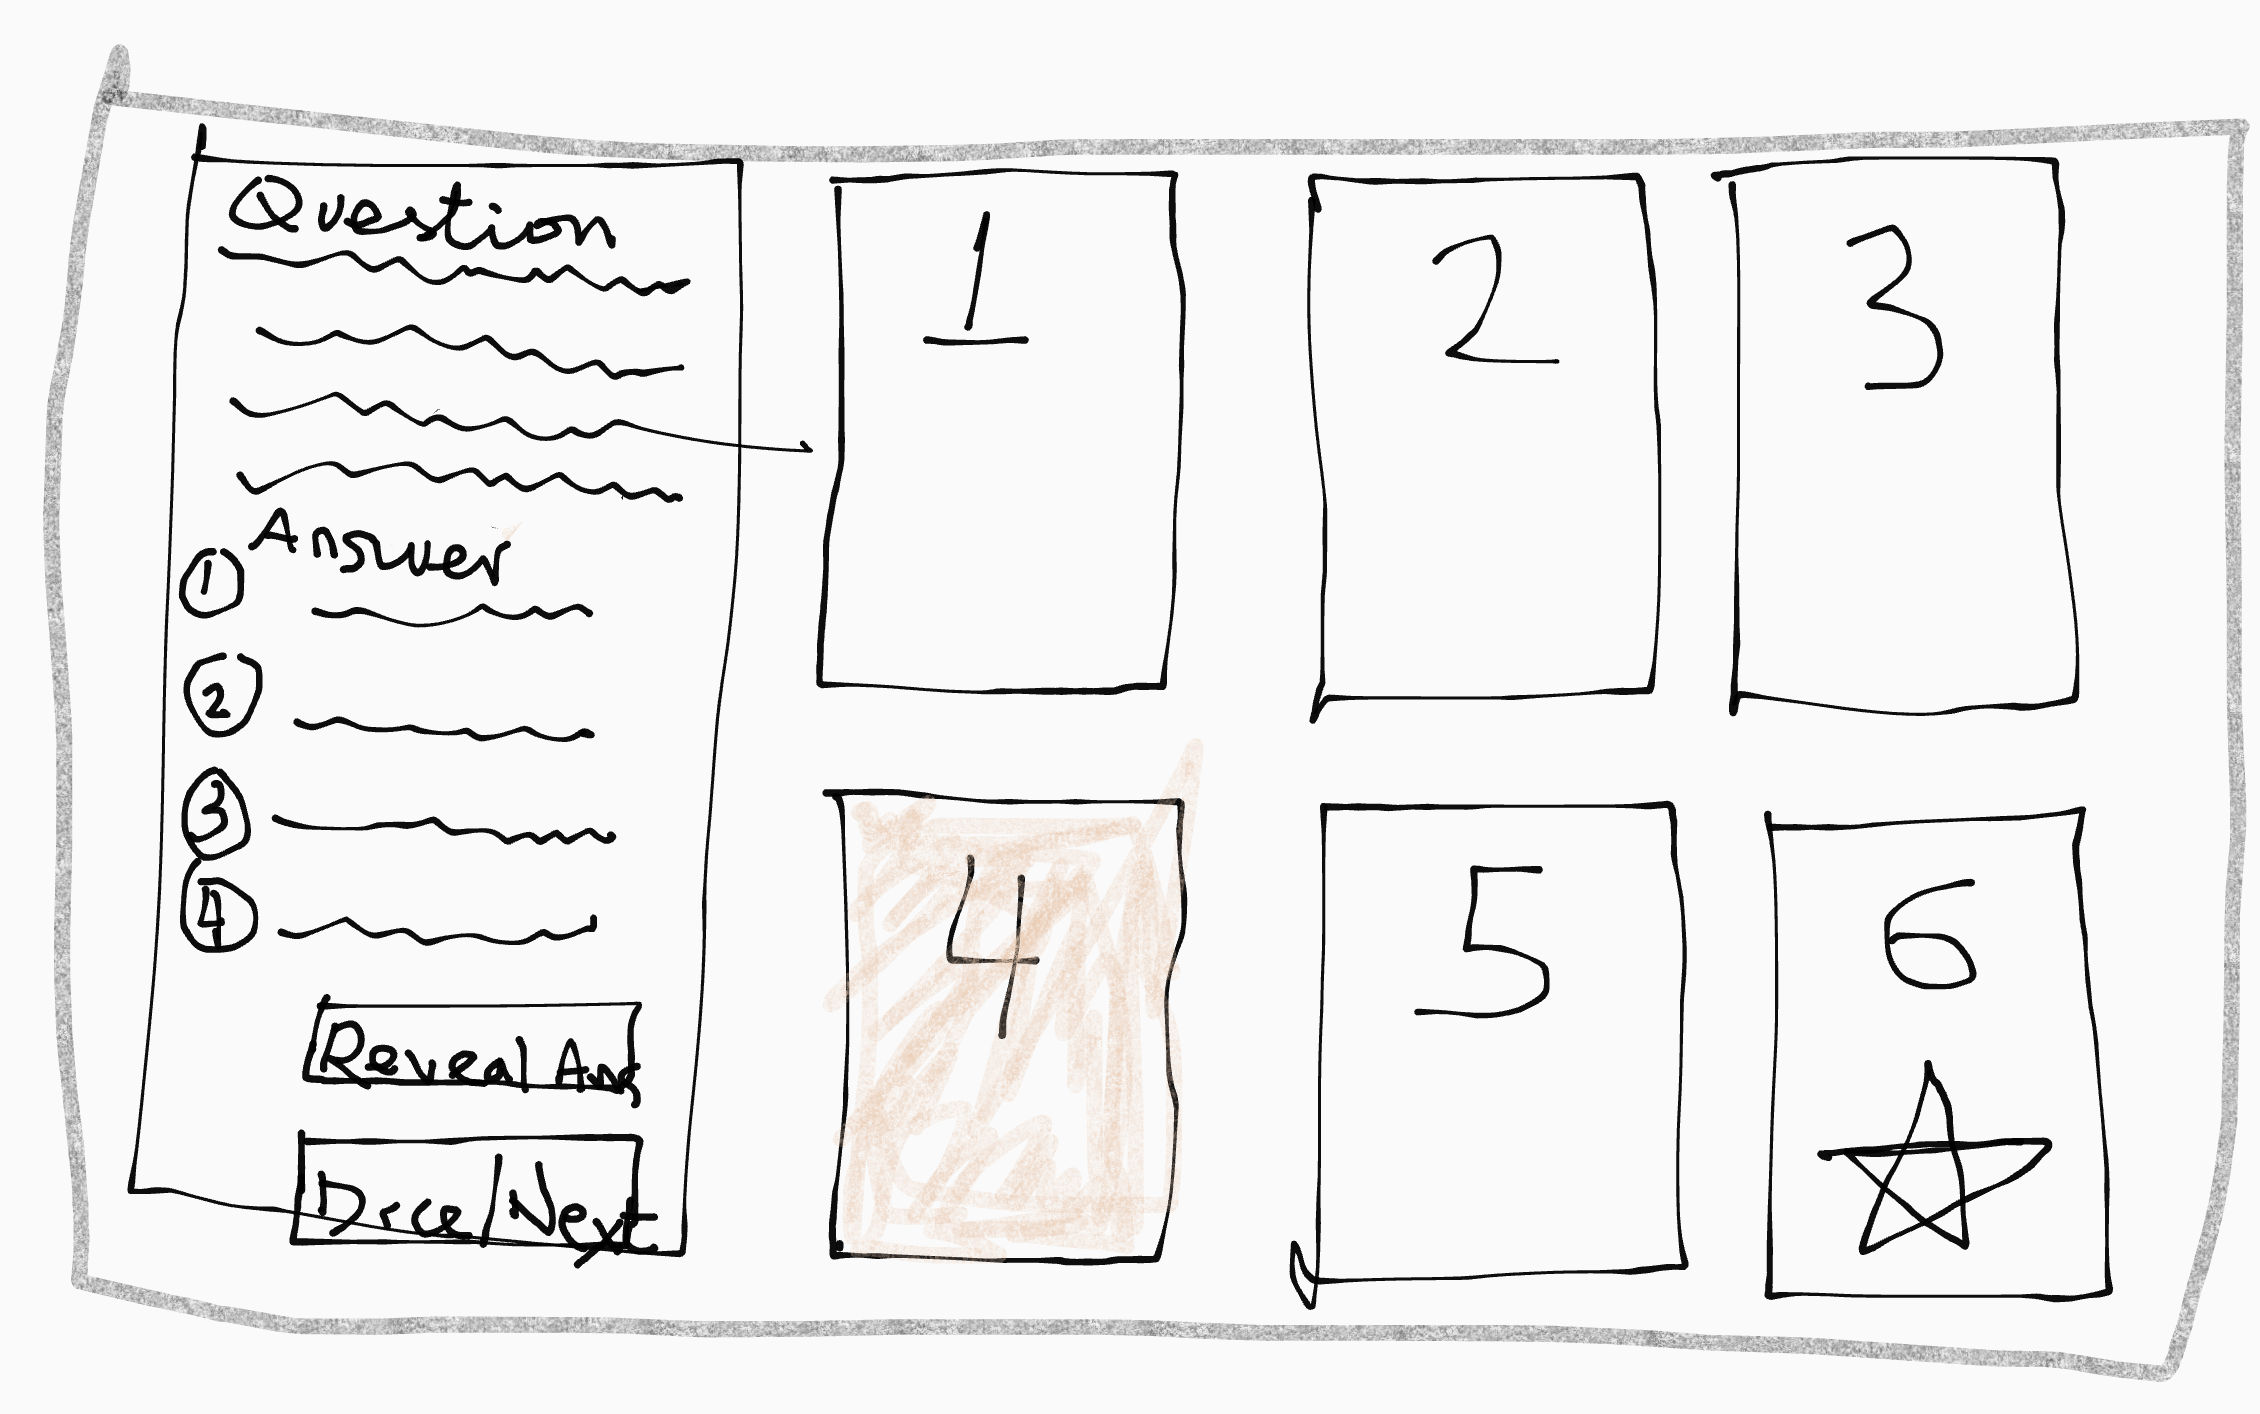 Question
Answer
1
2
3
4
Reveal Ans
Dice/Next
1
2
3
4
5
6